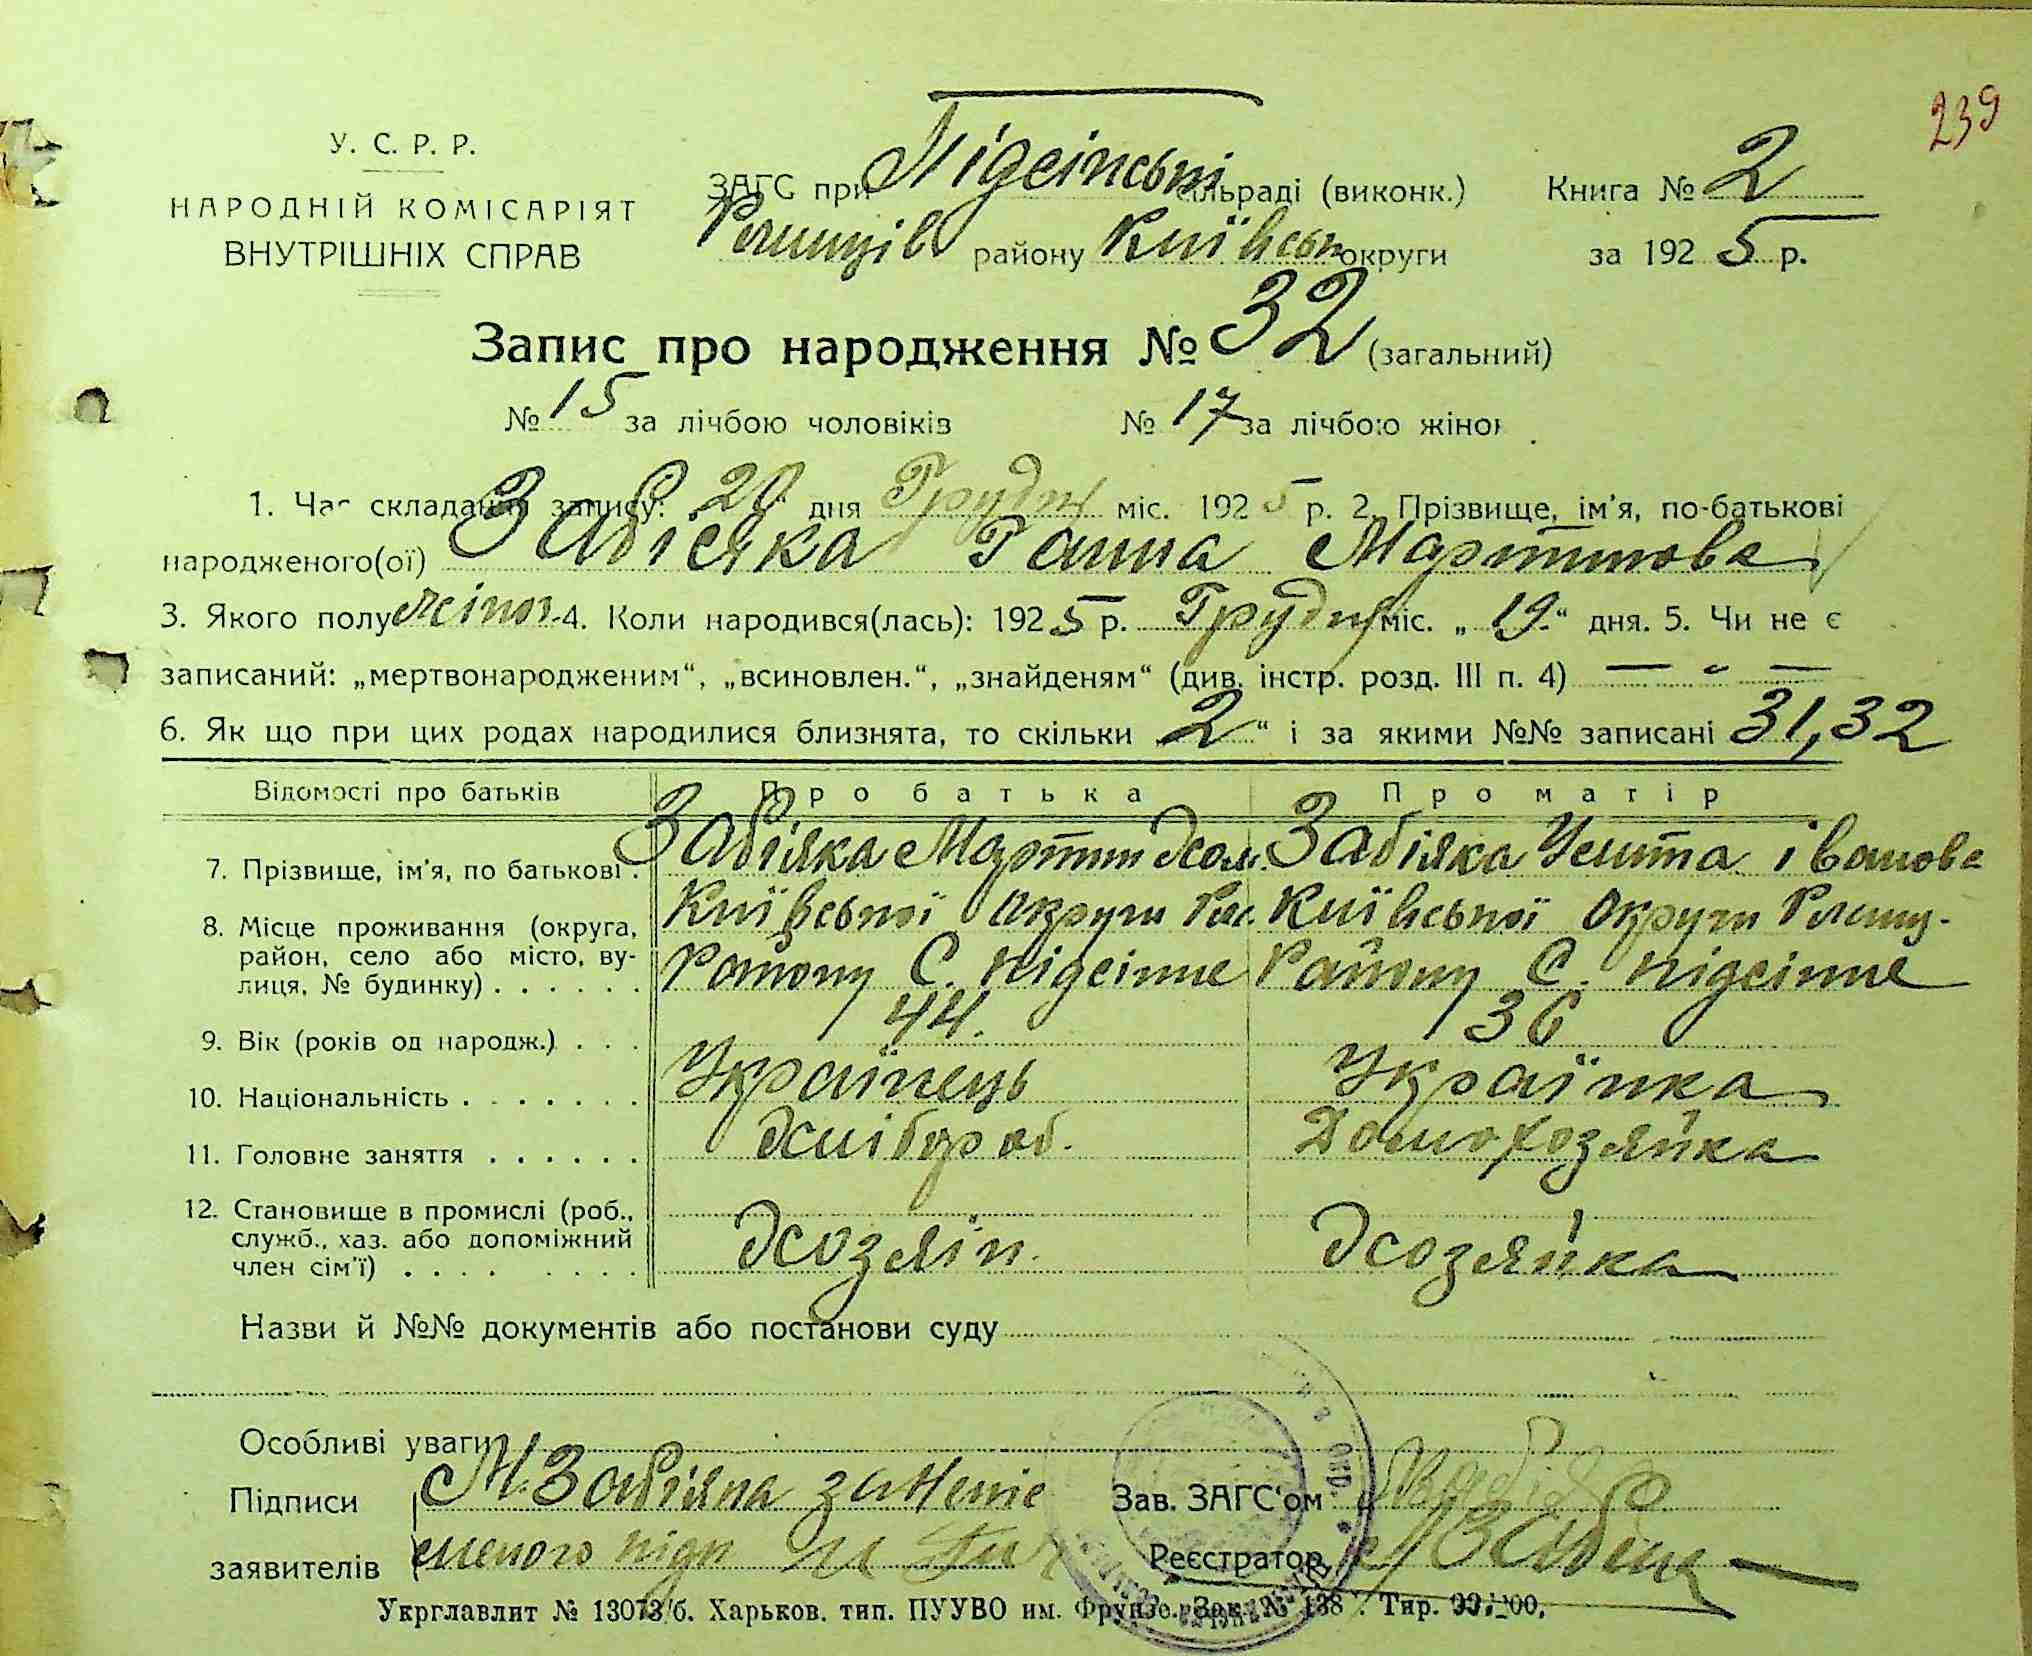 239
У. С. Р. Р.
НАРОДНІЙ КОМІСАРІЯТ
ВНУТРІШНІХ СПРАВ
ЗАГС при Підсінські сільраді (виконк.) Книга № 2
району Київськ округи за 1925 р.
Запис про народження № 32 (загальний)
№ 15 за лічбою чоловіків № 17 за лічбою жінок
1. Час складання запису: 20 дня Грудня міс. 1925 р. 2. Прізвище, ім'я, по-батькові
народженого(ої) Забіяка Ганна Мартинова
3. Якого полу жіноч. 4. Коли народився(лась): 1925 р. Грудня міс. „19“ дня. 5. Чи не є
записаний: „мертвонародженим“, „всиновлен.“, „знайденям“ (див. інстр. розд. III п. 4) — „ —
6. Як що при цих родах народилися близнята, то скільки „2“ і за якими №№ записані 31, 32
Відомості про батьків Про батька Про матір
7. Прізвище, ім'я, по батькові. Забіяка Мартин Забіяка Уліта Іванова
8. Місце проживання (округа, район, село або місто, вулиця, № будинку) . . . . . .
Київської Округи Київської Округи
Району С. Підсінне Району С. Підсінне
9. Вік (років од народж.) . . . 44. 36
10. Національність . . . . . . . Українець Українка
11. Головне заняття . . . . . . Хлібороб. Домохозяйка
12. Становище в промислі (роб., служб., хаз. або допоміжний член сім'ї) . . . . . . . . Хозяїн. Хозяйка
Назви й №№ документів або постанови суду
Особливі уваги
Підписи М. Забіяка за Зав. ЗАГС'ом
заявителів підп Реєстратор
Укрглавлит № 13073/б. Харьков. тип. ПУУВО им. Фрунзе. Зак. № 138